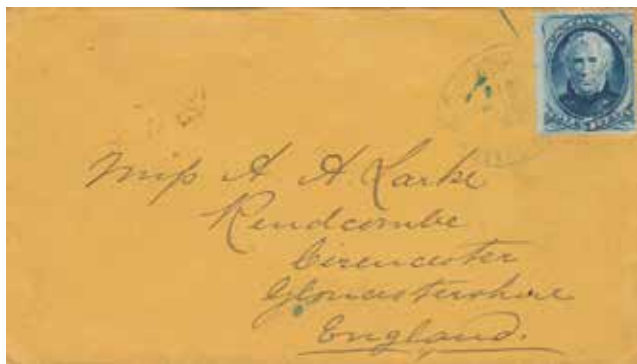 Miss A A. Larke
Rendcombe
Cirencester
Gloucestershire
England.